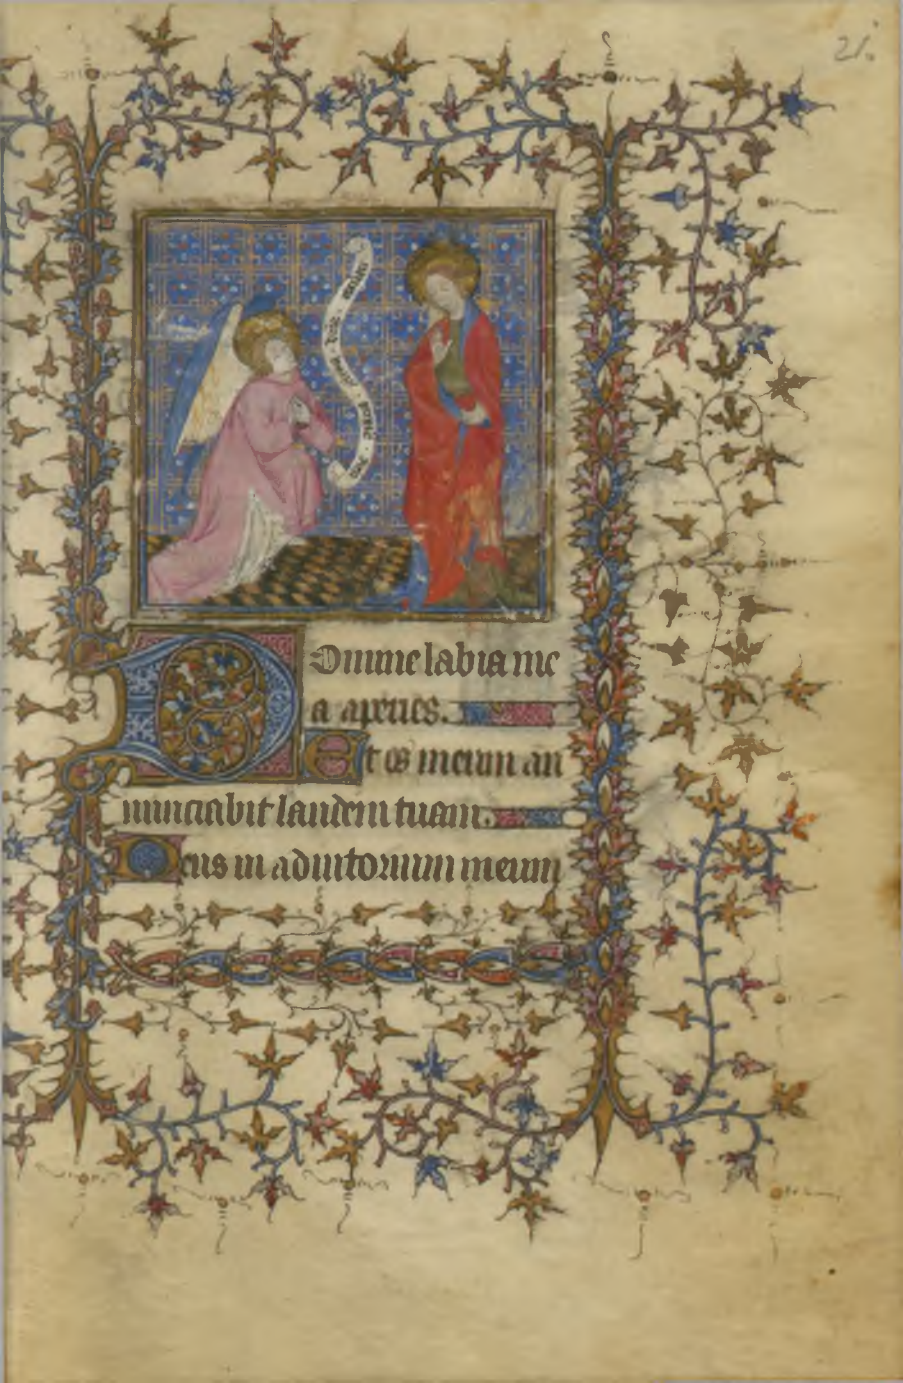 21.
DOmine labia me
a aperies.
Et os meum an
nunciabit laudem tuam.
Deus in adiutorium meum